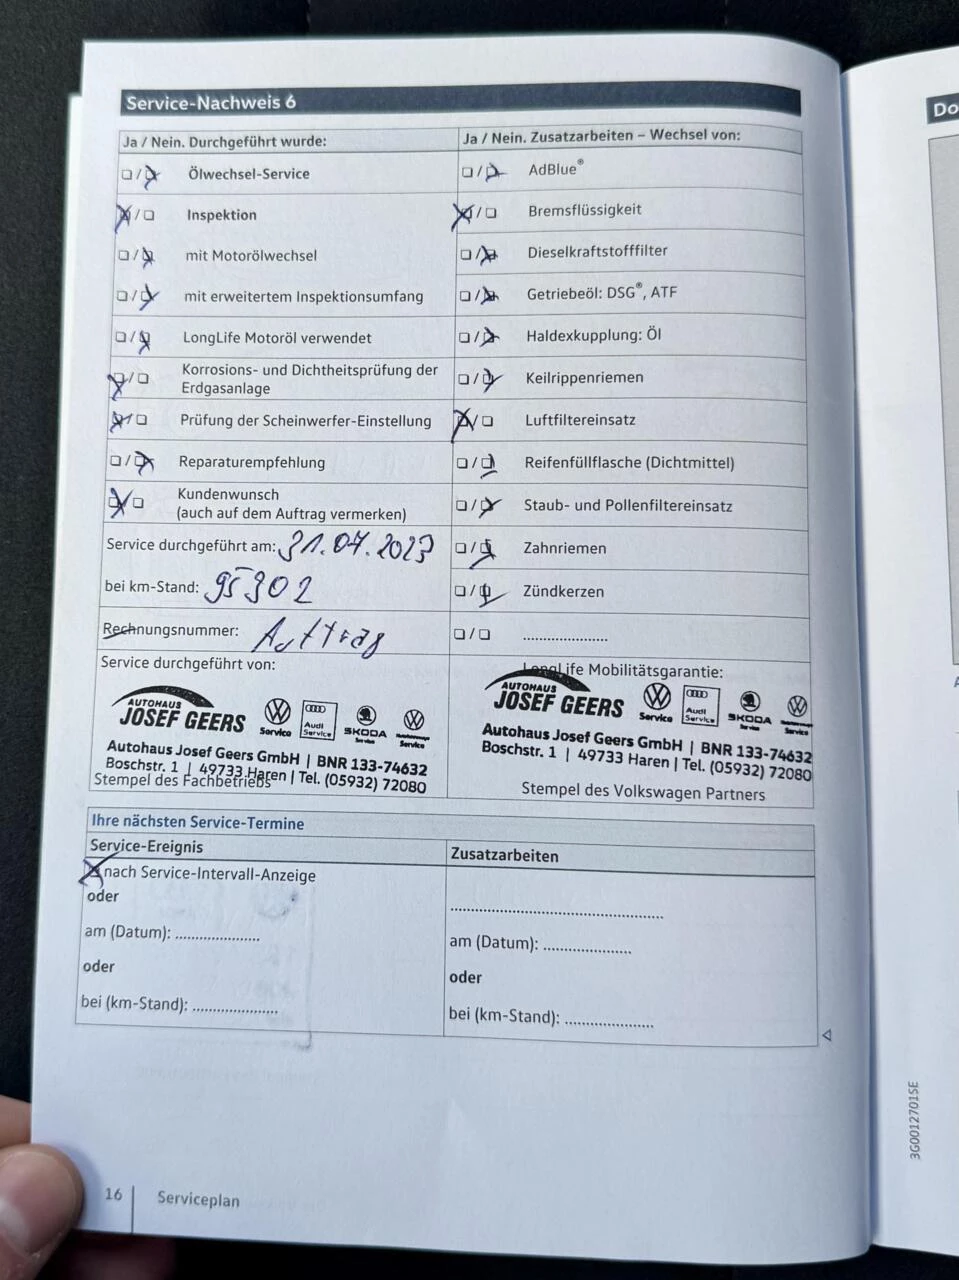 Service-Nachweis 6
Ja / Nein. Durchgeführt wurde:
Ja / Nein. Zusatzarbeiten – Wechsel von:
Ölwechsel-Service
AdBlue®
Inspektion
Bremsflüssigkeit
mit Motorölwechsel
Dieselkraftstofffilter
mit erweitertem Inspektionsumfang
Getriebeöl: DSG®, ATF
LongLife Motoröl verwendet
Haldexkupplung: Öl
Korrosions- und Dichtheitsprüfung der
Erdgasanlage
Keilrippenriemen
Prüfung der Scheinwerfer-Einstellung
Luftfiltereinsatz
Reparaturempfehlung
Reifenfüllflasche (Dichtmittel)
Kundenwunsch
(auch auf dem Auftrag vermerken)
Staub- und Pollenfiltereinsatz
Service durchgeführt am: 31.07.2023
Zahnriemen
bei km-Stand: 95302
Zündkerzen
Rechnungsnummer: Auftrag
......................
Service durchgeführt von:
LongLife Mobilitätsgarantie:
AUTOHAUS
JOSEF GEERS
Service
Audi
Service
SKODA
Service
Service
Autohaus Josef Geers GmbH | BNR 133-74632
Boschstr. 1 | 49733 Haren | Tel. (05932) 72080
Stempel des Fachbetriebs
AUTOHAUS
JOSEF GEERS
Service
Audi
Service
SKODA
Autohaus Josef Geers GmbH | BNR 133-74632
Boschstr. 1 | 49733 Haren | Tel. (05932) 72080
Stempel des Volkswagen Partners
Ihre nächsten Service-Termine
Service-Ereignis
Zusatzarbeiten
nach Service-Intervall-Anzeige
oder
am (Datum): ......................
oder
bei (km-Stand): ......................
......................................................
am (Datum): ......................
oder
bei (km-Stand): ......................
16
Serviceplan
3G0012701SE
Do